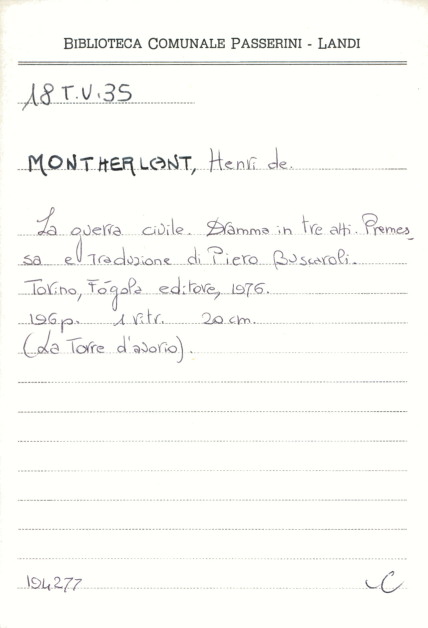 BIBLIOTECA COMUNALE PASSERINI - LANDI
18 T.V.35
MONTHERLANT, Henri de.
La guerra civile. Dramma in tre atti. Premes_
sa e Traduzione di Piero Buscaroli.
Torino, Fógola editore, 1976.
196p. 1 ritr. 20 cm.
(La Torre d'avorio).
194277